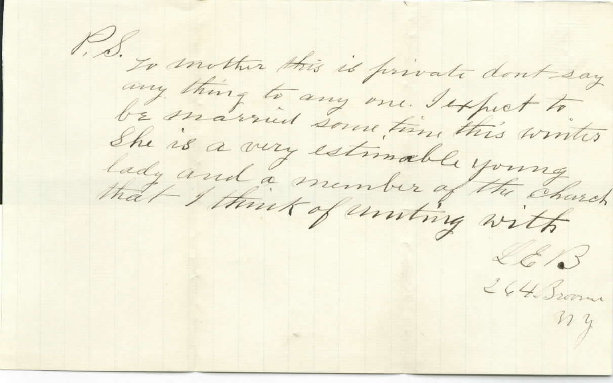 P.S.
To mother this is private dont say
any thing to any one. I expect to
be married some time this winter
She is a very estimable young
lady and a member of the church
that I think of uniting with
L E B
264 Broome
N Y